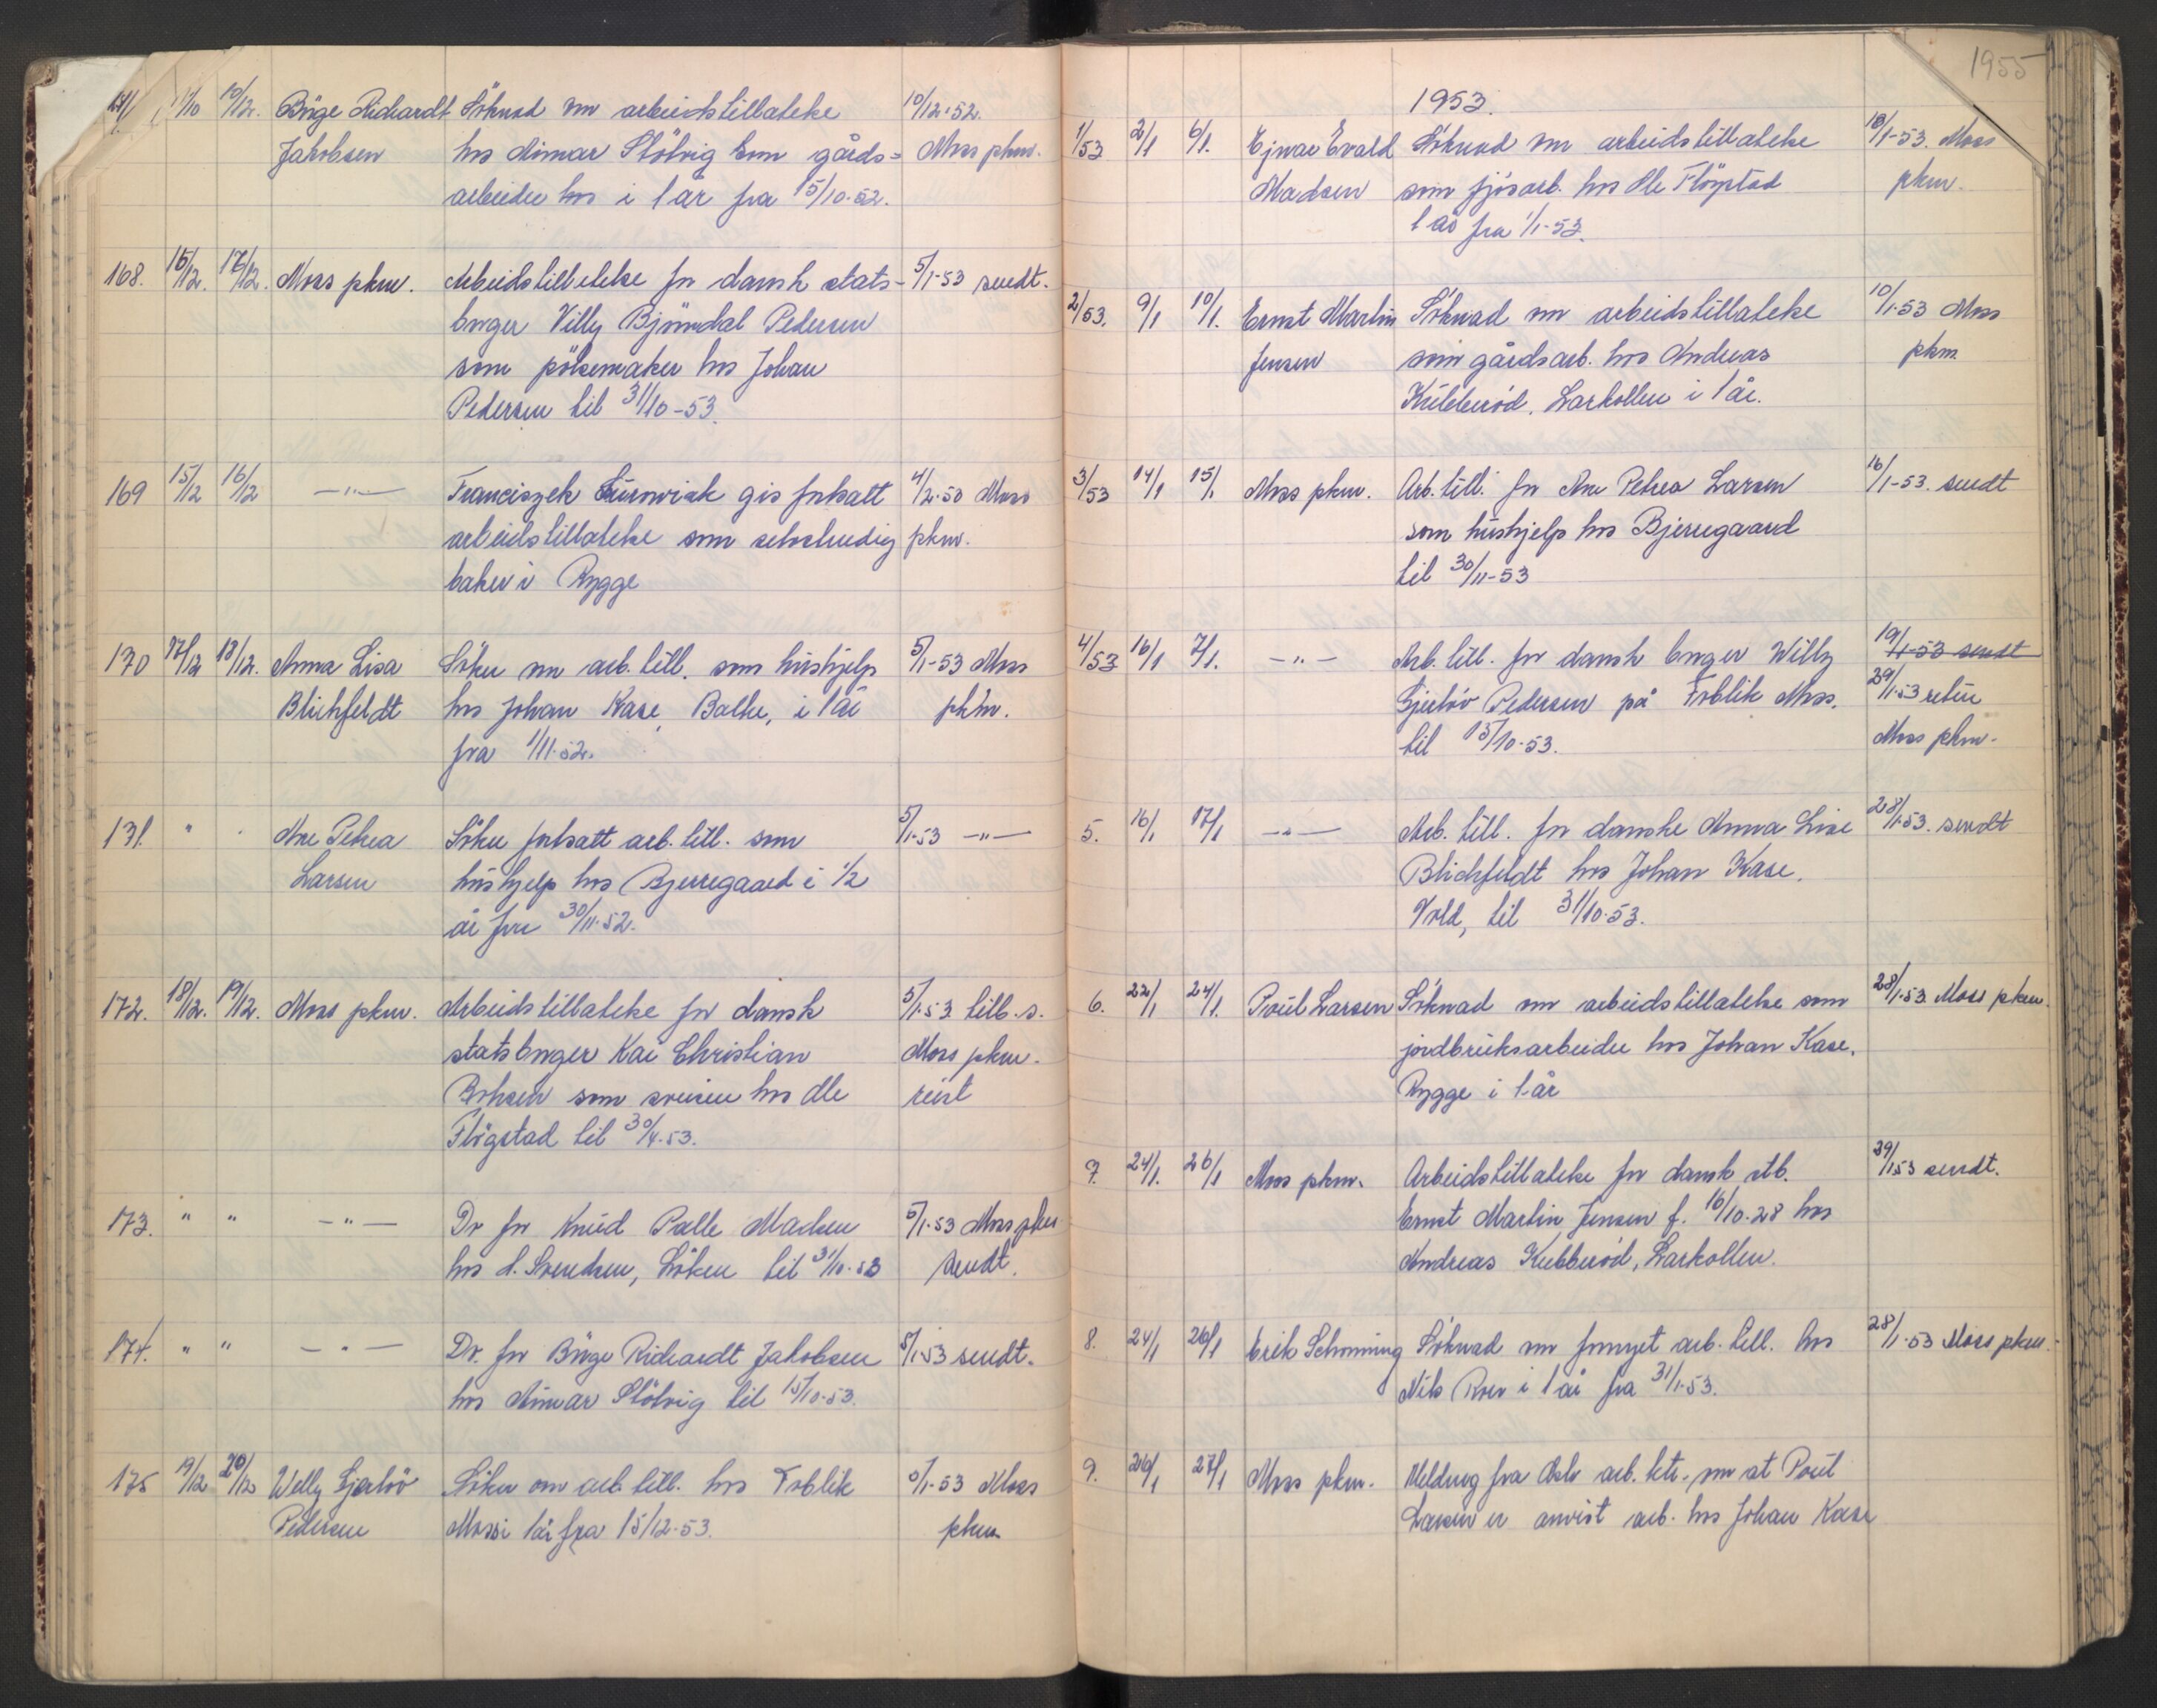 11/10 10/12. Börge Richardt Söknad om arbeidstillatelse 10/12-52.
Jakobsen hos Aimar Stölvig som gårds- Moss pkm.
arbeider hos i 1 år fra 15/10-52.
168. 16/12. 17/12. Moss pkm. Arbeidstillatelse for dansk stats- 5/1-53 sendt.
borger Villy Björndal Pedersen
som pölsemaker hos Johan
Pedersen til 31/10-53.
169 15/12 16/12 —"— Franciszek gis fortsatt 4/2-53 Moss
arbeidstillatelse som selvstendig pkm.
baker i Rygge
170 17/12 18/12. Anna Lisa Söker om arb. till. som hushjelp 5/1-53 Moss
Blichfeldt hos Johan Kase, Balke, i 1 år pkm.
fra 1/11-52.
171. " " Ane Petrea Söker fortsatt arb. till. som 5/1-53 —"—
Larsen hushjelp hos Bjerregaard i 1/2
år fra 30/11-52.
172. 18/12. 19/12. Moss pkm. Arbeidstillatelse for dansk 5/1-53 till. s.
statsborger Kai Christian Moss pkm.
som sveiser hos Ole reist
Flögstad til 30/4-53.
173. " " —"— Do for Knud Palle Madsen 5/1-53 Moss pkm
hos d. Svendsen, Löken til 31/10-53 sendt.
174. " " —"— Do. for Börge Richardt Jakobsen 5/1-53 sendt.
hos Aimar Stölvig til 15/10-53.
175 19/12 20/12 Welly Gjerlöv Söker om arb. till. hos Foblik 5/1-53 Moss
Pedersen Moss i 1 år fra 15/12-53. pkm
1955
1953.
1/53 2/1 6/1. Ejnar Evald Söknad om arbeidstillatelse 10/1-53. Moss
Madsen som fjösarb. hos Ole Flögstad pkm.
1 år fra 1/1-53.
2/53. 9/1 10/1. Ernst Martin Söknad om arbeidstillatelse 10/1-53 Moss
Jensen som gårdsarb. hos Andreas pkm
Kubberöd, Larkollen i 1 år.
3/53 14/1 15/1 Moss pkm. Arb. till. for Ane Petrea Larsen 16/1-53. sendt
som hushjelp hos Bjerregaard
til 30/11-53
4/53 16/1 7/1. —"— Arb. till. for dansk borger Willy 19/1-53 sendt
Gjerlöv Pedersen på Foblik Moss. 29/1-53 retur
til 15/10-53. Moss pkm.
5. 16/1 17/1 —"— Arb. till. for danske Anna Lise 28/1-53. sendt
Blichfeldt hos Johan Kase,
Vold, til 31/10-53.
6. 22/1 24/1. Poul Larsen Söknad om arbeidstillatelse som 28/1-53. Moss pkm.
jordbruksarbeider hos Johan Kase,
Rygge i 1 år
7. 24/1. 26/1 Moss pkm. Arbeidstillatelse for dansk stb. 29/1-53 sendt.
Ernst Martin Jensen f. 16/10-28 hos
Andreas Kubberöd, Larkollen.
8. 24/1 26/1 Erik Schonning Söknad om fornyet arb. till. hos 28/1-53 Moss pkm.
Nils Roer i 1 år fra 31/1-53.
9. 26/1 27/1 Moss pkm. Melding fra Oslo arb. ktr. om at Poul
Larsen er anvist arb. hos Johan Kase